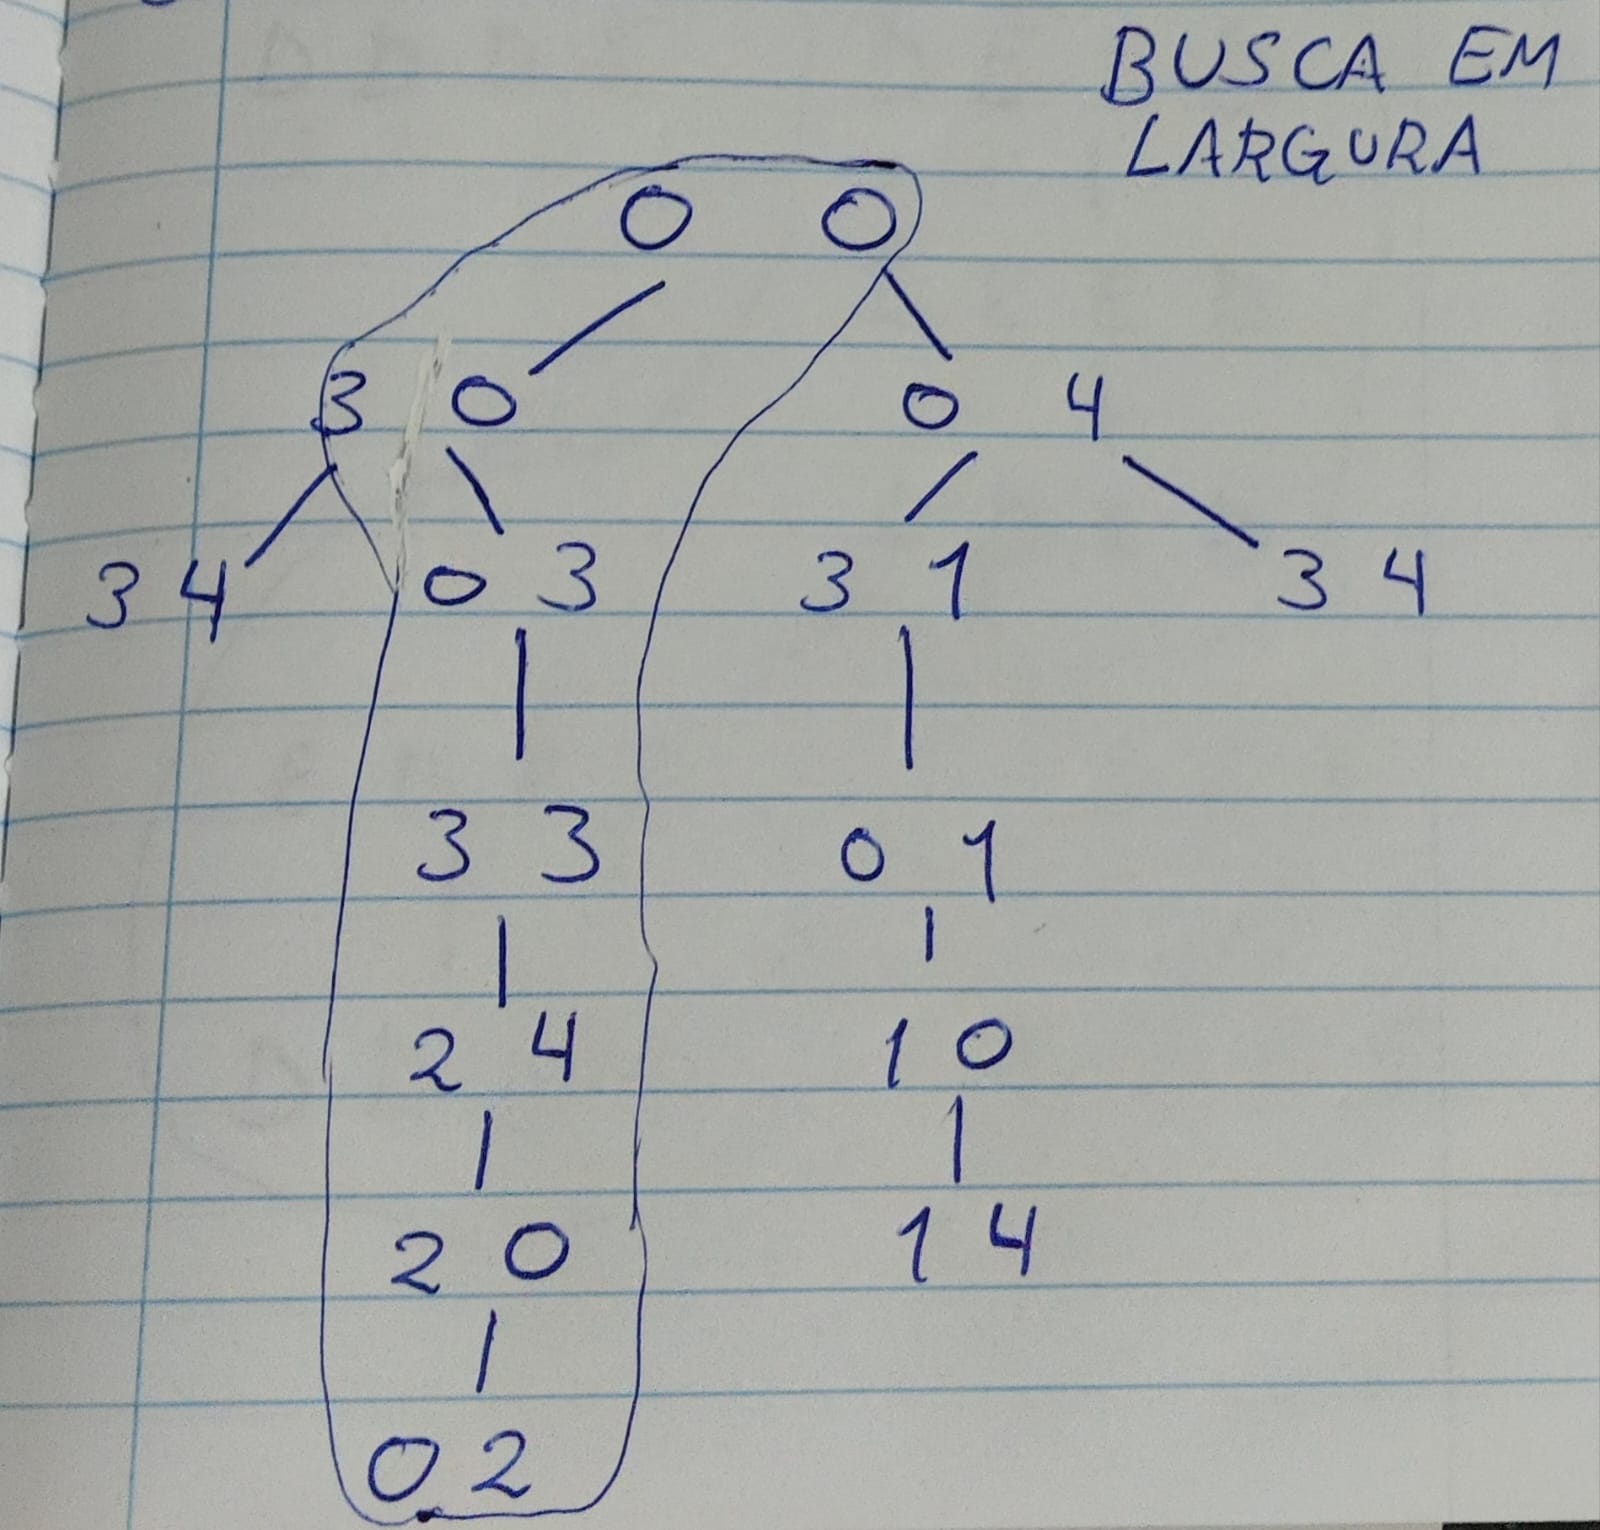 BUSCA EM
LARGURA
0 0
3 0 0 4
3 4 0 3 3 1 3 4
3 3 0 1
2 4 1 0
2 0 1 4
0 2